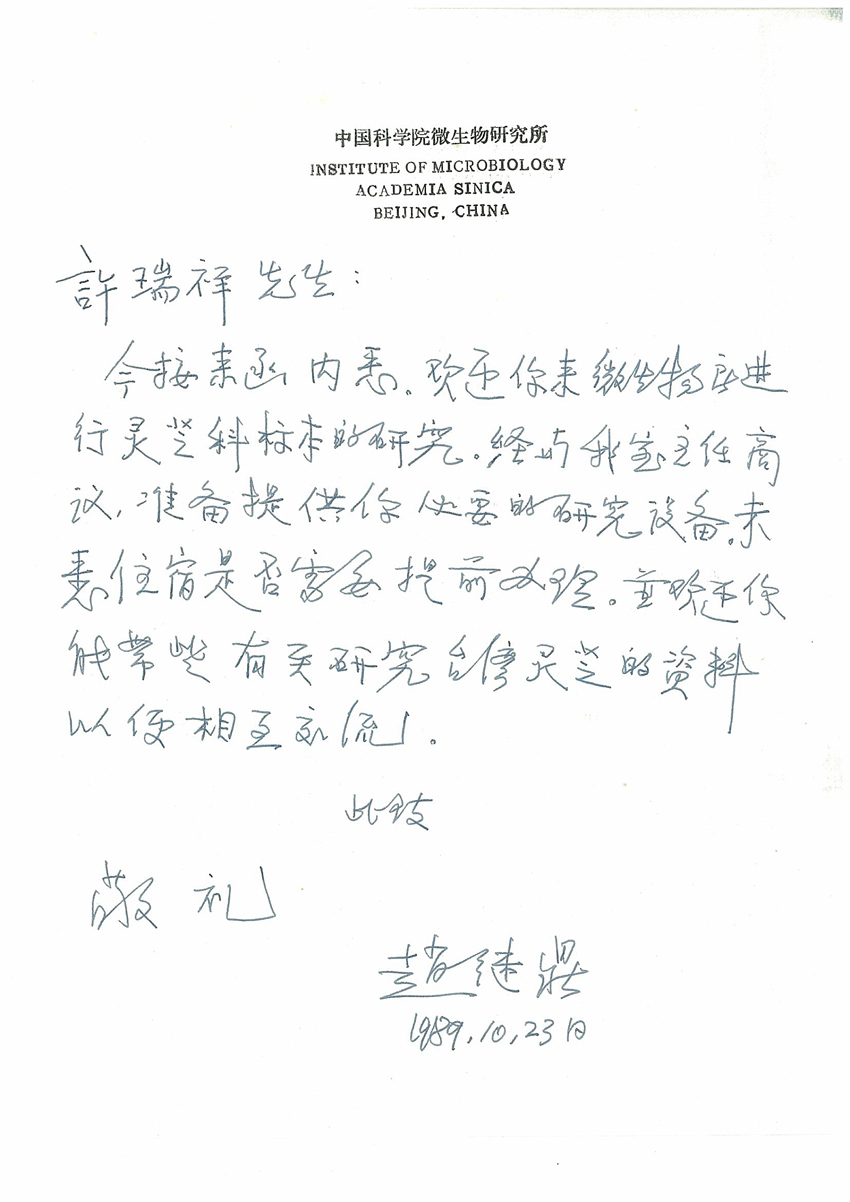 中国科学院微生物研究所
INSTITUTE OF MICROBIOLOGY
ACADEMIA SINICA
BEIJING, CHINA
許瑞祥 先生：
今接来函内悉。欢迎你来微生物所进
行灵芝科标本的研究。经与我室主任商
议，准备提供你必要的研究设备。未
悉住宿是否需要提前办理。並欢迎你
能带些有关研究台湾灵芝的資料
以便相互交流。
此致
敬礼
赵继鼎
1989.10.23日